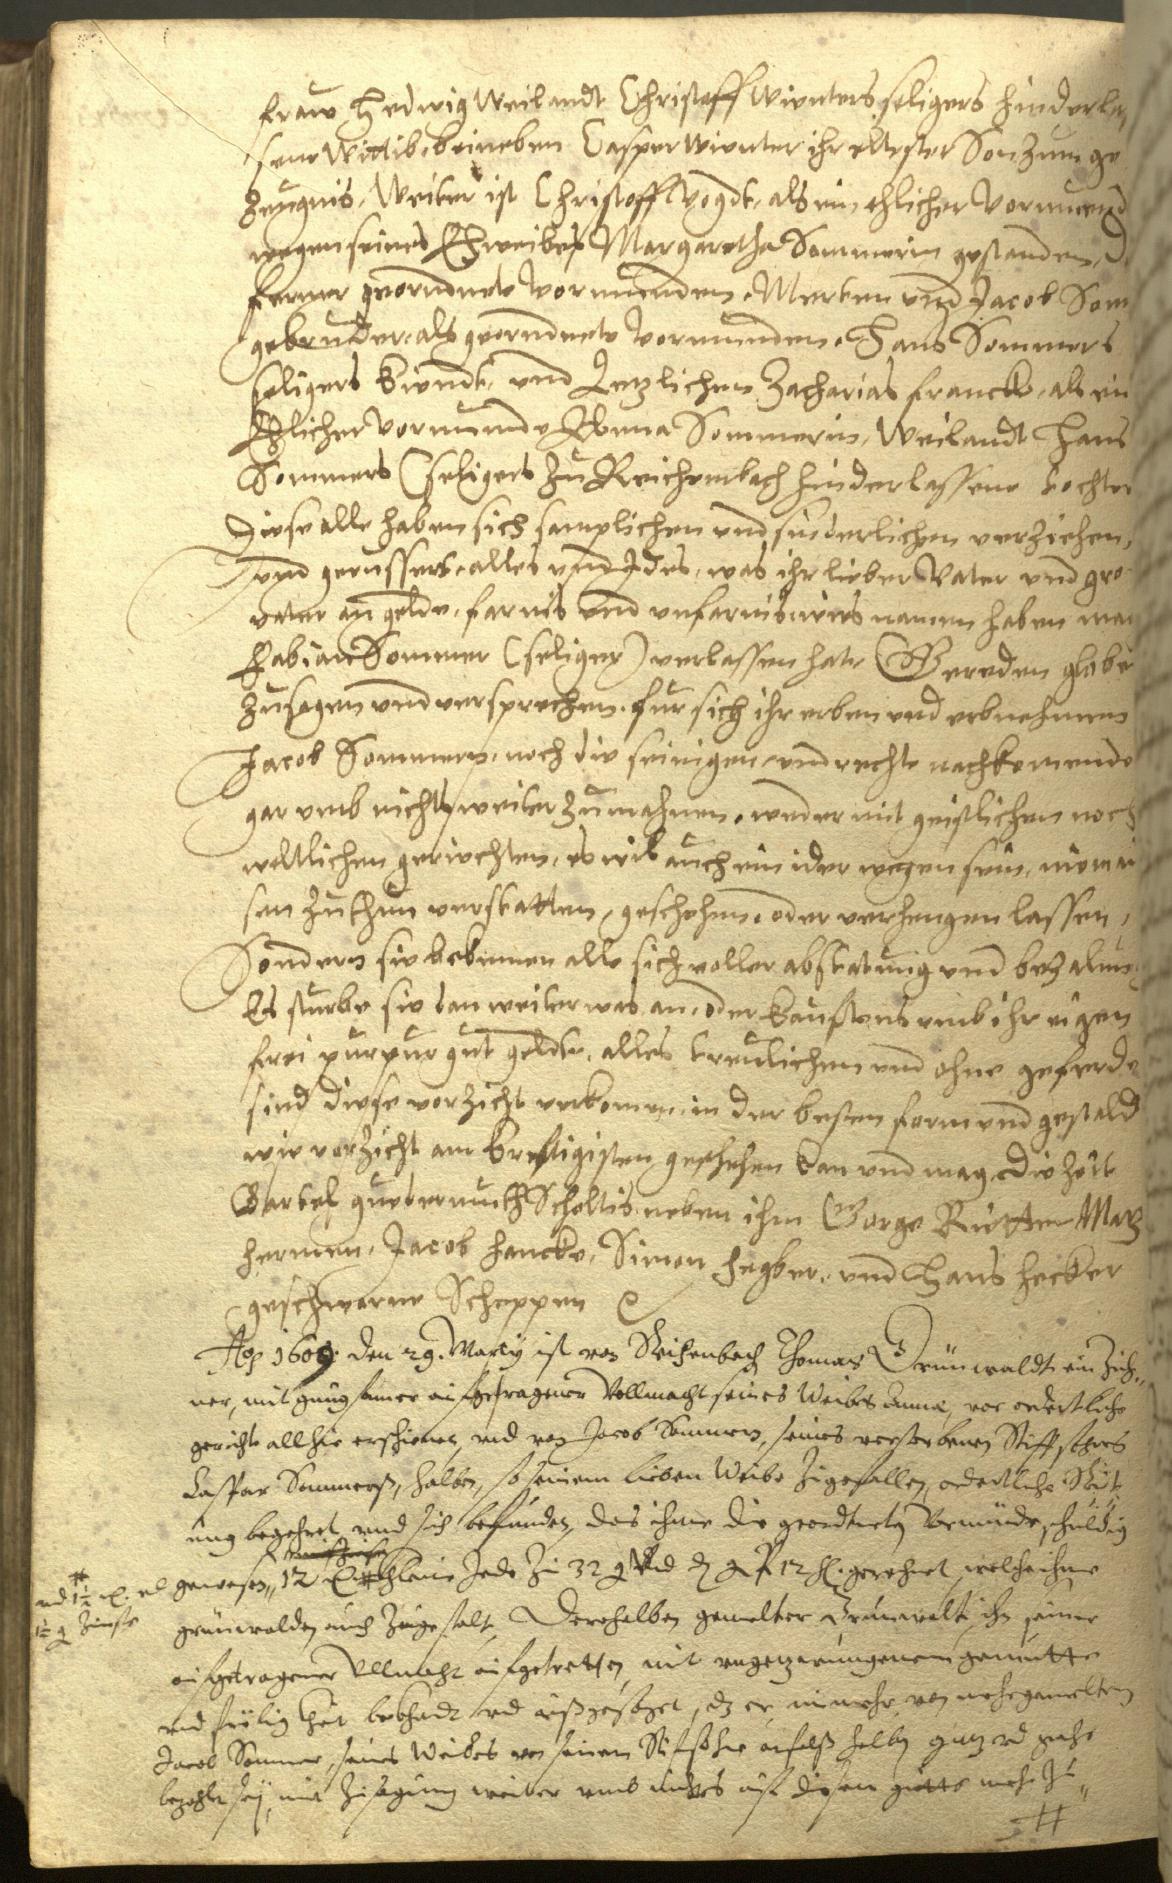 fraw Hedwig Weilandt Christoff Winters seligers hinderla
sene Wittib, beineben Casper Winter ihr eltester Son zum ge
zeugnis, Weiter ist Christoff Vogdt, als ein ehlicher Vormund
wegen seines Ehweibes Margaretha Sommerin gestanden,
ferner geordnete Vormunden, Merten und Jacob Som
gebruder, als geordnete Vormunden, Hans Sommers
seligers kindt, und Letzlichen Zacharias francke, als ein
Ehlicher Vormunde Anna Sommerin, Weilandt Hans
Sommers (seligers zu Reichenbach hinderlassene tochter
Diese alle haben sich samptlichen und sunderlichen verziehen,
und geeussert, alles und Ides, was ihr lieber Vater und gro
vater an gelde, farnis und unfarnis wies namen haben mag
Fabian Sommer (seliger) verlassen hat, Gereden globe
zusagen und versprechen, fur sich ihr erben und erbnehmen
Jacob Sommern, noch die seinigen, und rechte nachkomende
gar umb nichts weiter zumahnen, weder mit geistlichen noch
weltlichen gerichten, es wil auch ein ider wegen sein, niema
sen zuthun verstatten, geschehen, oder verhengen lassen,
Sondern sie bekennen alle sich voller abstatung und bezalun
Es sturbe sie dan weiter was an, oder kauftens umb ihr eigen
frei purpur gut geldt, alles treulichen und ohne geferde
sind diese vorzicht verkomen, in der besten form und gestald
wie vorzicht am kreftigisten geschehen kan und mag, Die Zeit
Bartel Scholtis, neben ihm George Ritter Matz
herman, Jacob hancke, Simon und Hans hecker
geschworne Scheppen
Ao 1609. den 29. Marty ist von Reichenbach Thomas Grünwaldt ein Zich„
ner, mit gnugsamer aufgetragener Vollmacht seines Weibes Anna, vor ordentliche
gerichte allhie erschienen, und von Jacob Sommern, seines verstorbenen Stiffsohnes
Caspar Sommers, halben, so seinem lieben Weibe zugefallen, ordentliche
ung begehret, und sich befunden, das ihme die geordneten Vormünde, schuldig
gewesen, 12 jede zu 32 g und 12 hl. gerechnet, welche ihme
grünwalden auch zugestalt, Derohalben gemelter Grünwaldt in seiner
aufgetragener Vllmacht aufgetretten, mit ungezwungenem gemütte
und freiwillig hat bekandt und außgesaget, dz er, nimehr von mehrgemelten
Jacob Sommer, seines Weibes von seinem Stifsohne anfalß halben gantz und gahr
bezahlet sey, mit zusagung weiter umb nichts auf diesem gutte mehr zu„